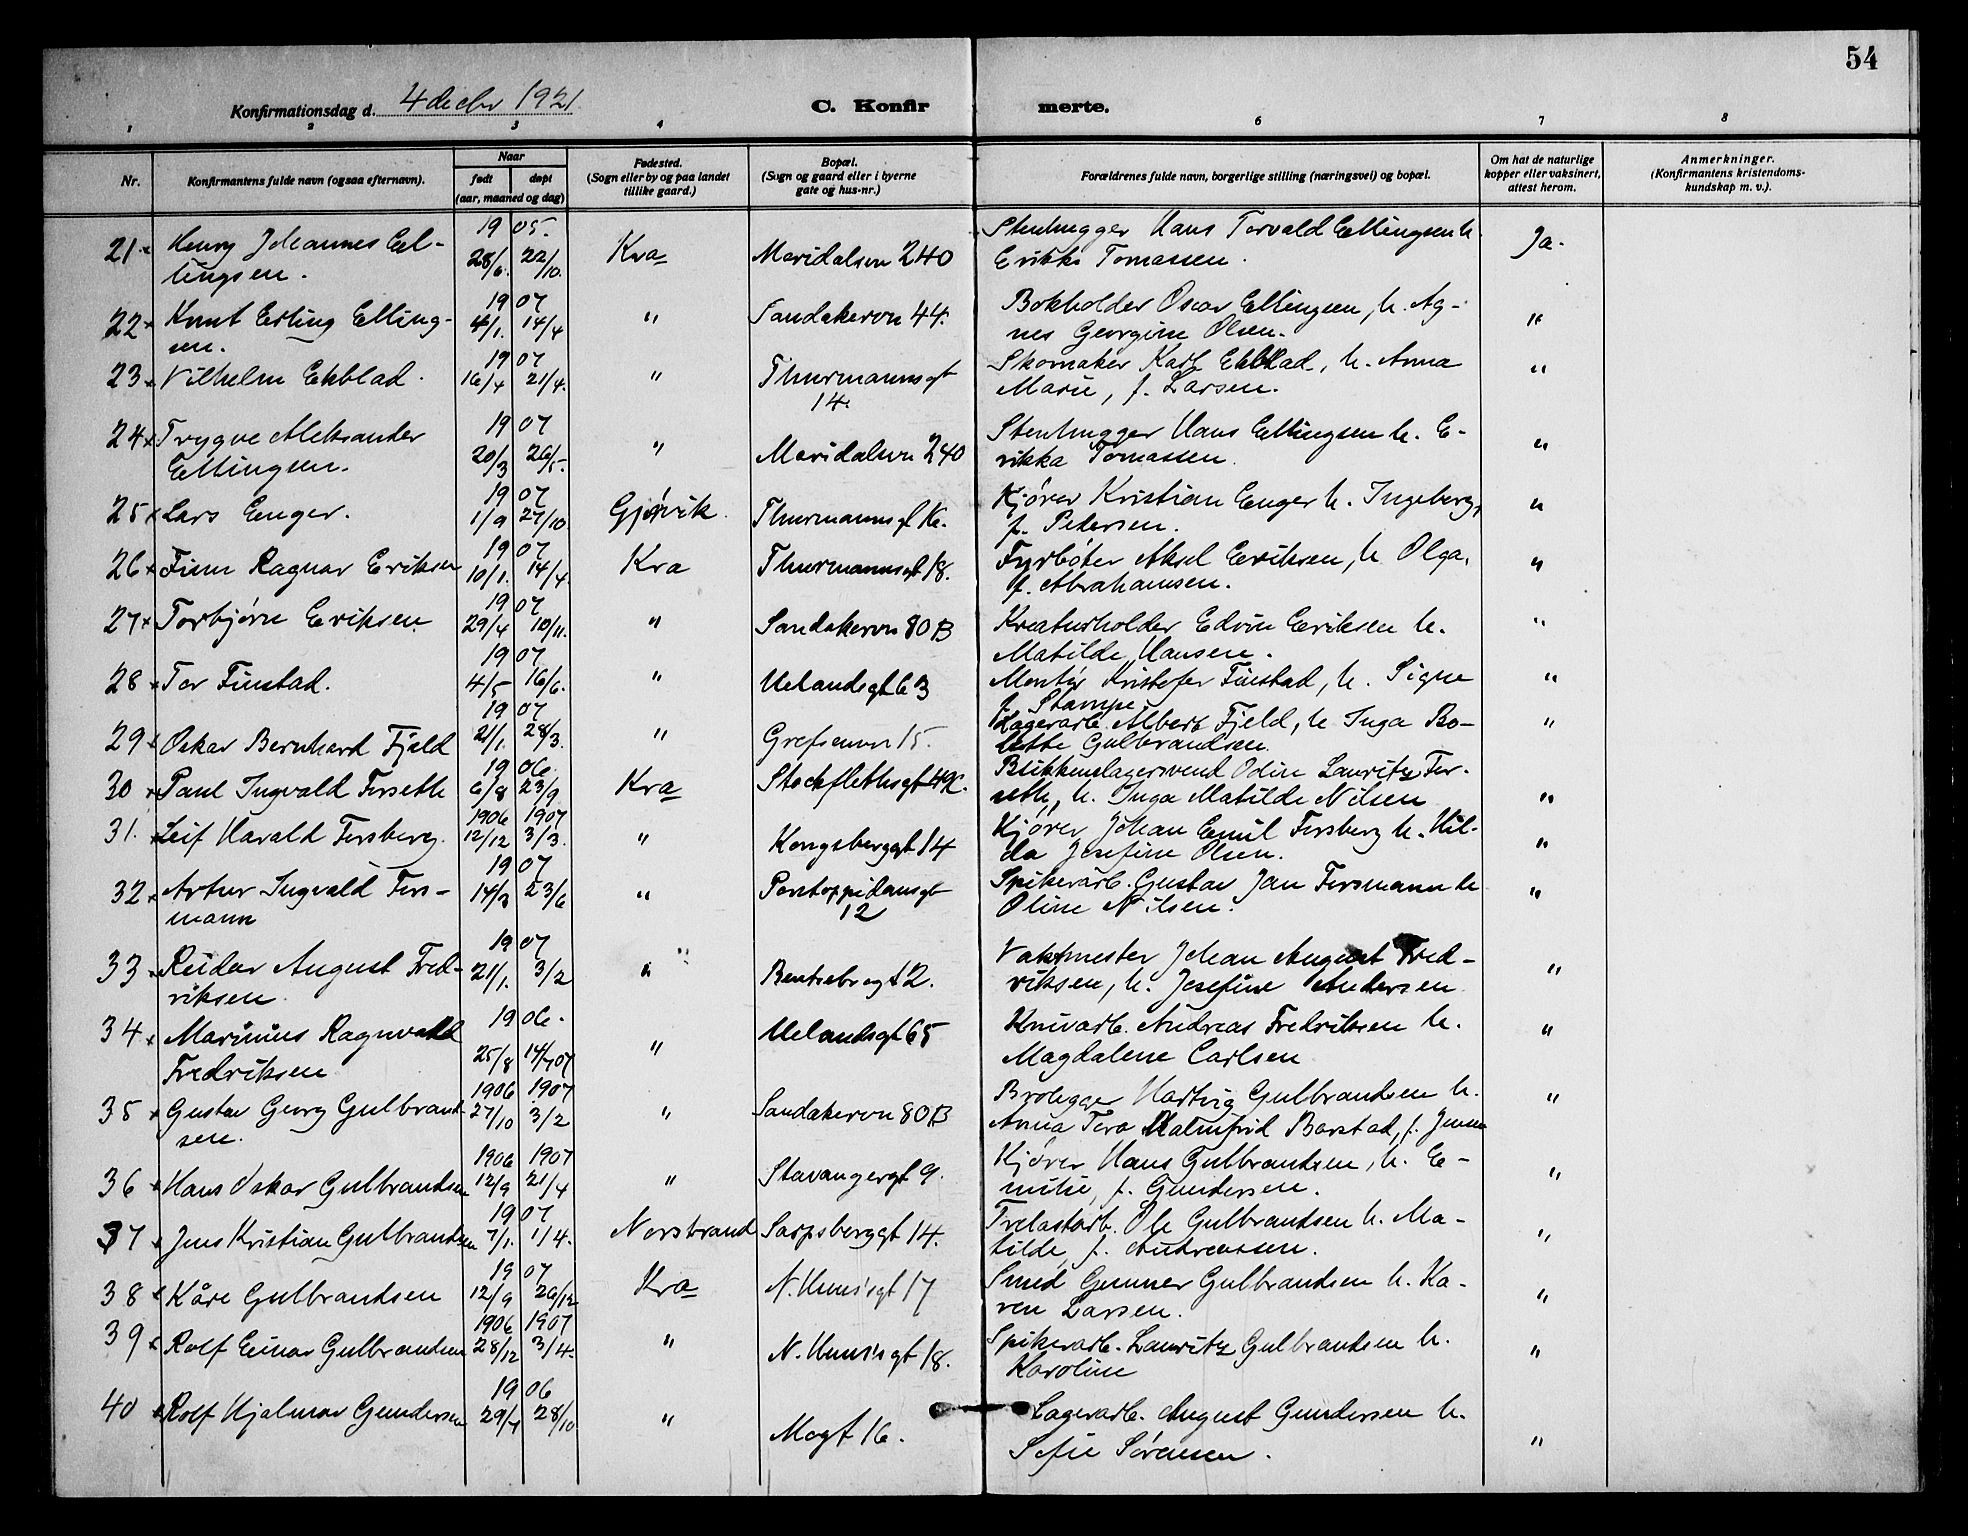 54
Konfirmationsdag d. 4 decbr 1921.
C. Konfirmerte.
1 2 3 4 6 7 8
Nr.
Konfirmantens fulde navn (ogsaa efternavn).
Naar
født døpt
(aar, maaned og dag)
Fødested.
(Sogn eller by og paa landet
tillike gaard.)
Bopæl.
(Sogn og gaard eller i byerne
gate og hus-nr.)
Forældrenes fulde navn, borgerlige stilling (næringsvei) og bopæl.
Om hat de naturlige
kopper eller vaksinert,
attest herom.
Anmerkninger.
(Konfirmantens kristendoms-
kundskap m. v.).
19 05. Stenhugger Hans Torvald Ellingsen h.
21 Henry Johannes El- 28/6. 22/10. Kra Maridalsvn 240 Erikke Tomassen. Ja.
lingsen.
19 07 Bokholder Oscar Ellingsen, h. Ag-
22 Knut Erling Elling- 4/1. 14/4 " Sandakervn 44. nes Georgine Olsen. "
sen.
19 07 Skomaker Karl Ekblad, h. Anna
23 Vilhelm Ekblad. 16/4 21/4. " Thurmannsgt Marie, f. Larsen. "
14.
19 07 Stenhugger Hans Ellingsen h. E-
24 Trygve Aleksander 20/3 26/5. " Maridalsvn 240 rikka Tomassen. "
Ellingsen.
19 07 Kjører Kristian Enger h. Ingeborg,
25 Lars Enger. 1/9 27/10 Gjøvik. Thurmannsgt 16. f. Petersen. "
19 07 Fyrbøter Aksel Eriksen, h Olga,
26 Finn Ragnar Eriksen 10/1. 14/4. Kra Thurmannsgt 18. f. Abrahamsen. "
19 07
27 Torbjørn Eriksen 29/4 10/11. " Sandakervn 80 B Kreaturholder Edvin Eriksen h. "
Matilde Hansen.
19 07
28 Tor Finstad. 4/5 16/6. " Uelandsgt 63 Montør Kristofer Finstad, h. Signe "
f. Stampe.
19 07 Lagerarb. Albert Fjeld, h Inga Bo-
29 Oskar Bernhard Fjeld 21/1. 28/3. " Grefsenvn 15. lette Gulbrandsen. "
19 06. Blikkenslagersvend Odin Lauritz For-
30 Paul Ingvald Forseth 6/8 23/9 Kra Stockflethsgt seth, h. Inga Matilde Nilsen "
1906 1907 Kjører Johan Emil Forsberg h. Hil-
31. Leif Harald Forsberg. 12/12 3/3. " Kongsberggt 14 da Josefine Olsen. "
19 07 Spikerarb. Gustav Jan Forsmann h
32 Artur Ingvald Fors- 14/3 23/6 " Pontoppidansgt Oline Nilsen. "
mann 12
19 07 Vaktmester Johan August Fred-
33 Reidar August Fred- 21/1. 3/2 " Bentsebrogt 2. riksen, h. Josefine Andersen "
riksen
19 06. Knivarb. Andreas Fredriksen h.
34 Marinius Ragnvald 25/8 14/7 07 " Uelandsgt 65 Magdalene Carlsen "
Fredriksen
1906 1907 Brolegger Hartvig Gulbrandsen h.
35 Gustav Georg Gulbrand- 27/10 3/2 " Sandakervn 80 B Anna Tora Malmfrid Barstad, f. Jensen "
sen.
1906 1907 Kjører Hans Gulbrandsen, h. E-
36 Hans Oskar Gulbrandsen 12/9 21/4 " Stavangergt 9. milie, f. Gundersen. "
19 07 Trelastarb. Ole Gulbrandsen h. Ma-
37 Jens Kristian Gulbrandsen 7/1. 1/4. Norstrand Sarpsborggt 14. tilde, f. Andreassen. "
19 07 Smed Gunner Gulbrandsen h. Ka-
38 Kåre Gulbrandsen 12/9 26/12 Kra N. Unnisgt 17 ren Larsen. "
1906 1907
39 Rolf Einar Gulbrandsen 28/12 3/4. " N. Unnisgt 18. Spikerarb. Lauritz Gulbrandsen h. "
Karoline
19 06
40 Rolf Hjalmar Gundersen 29/4 28/10 " Mogt 16. Lagerarb. August Gundersen h. "
Sofie Sørensen.